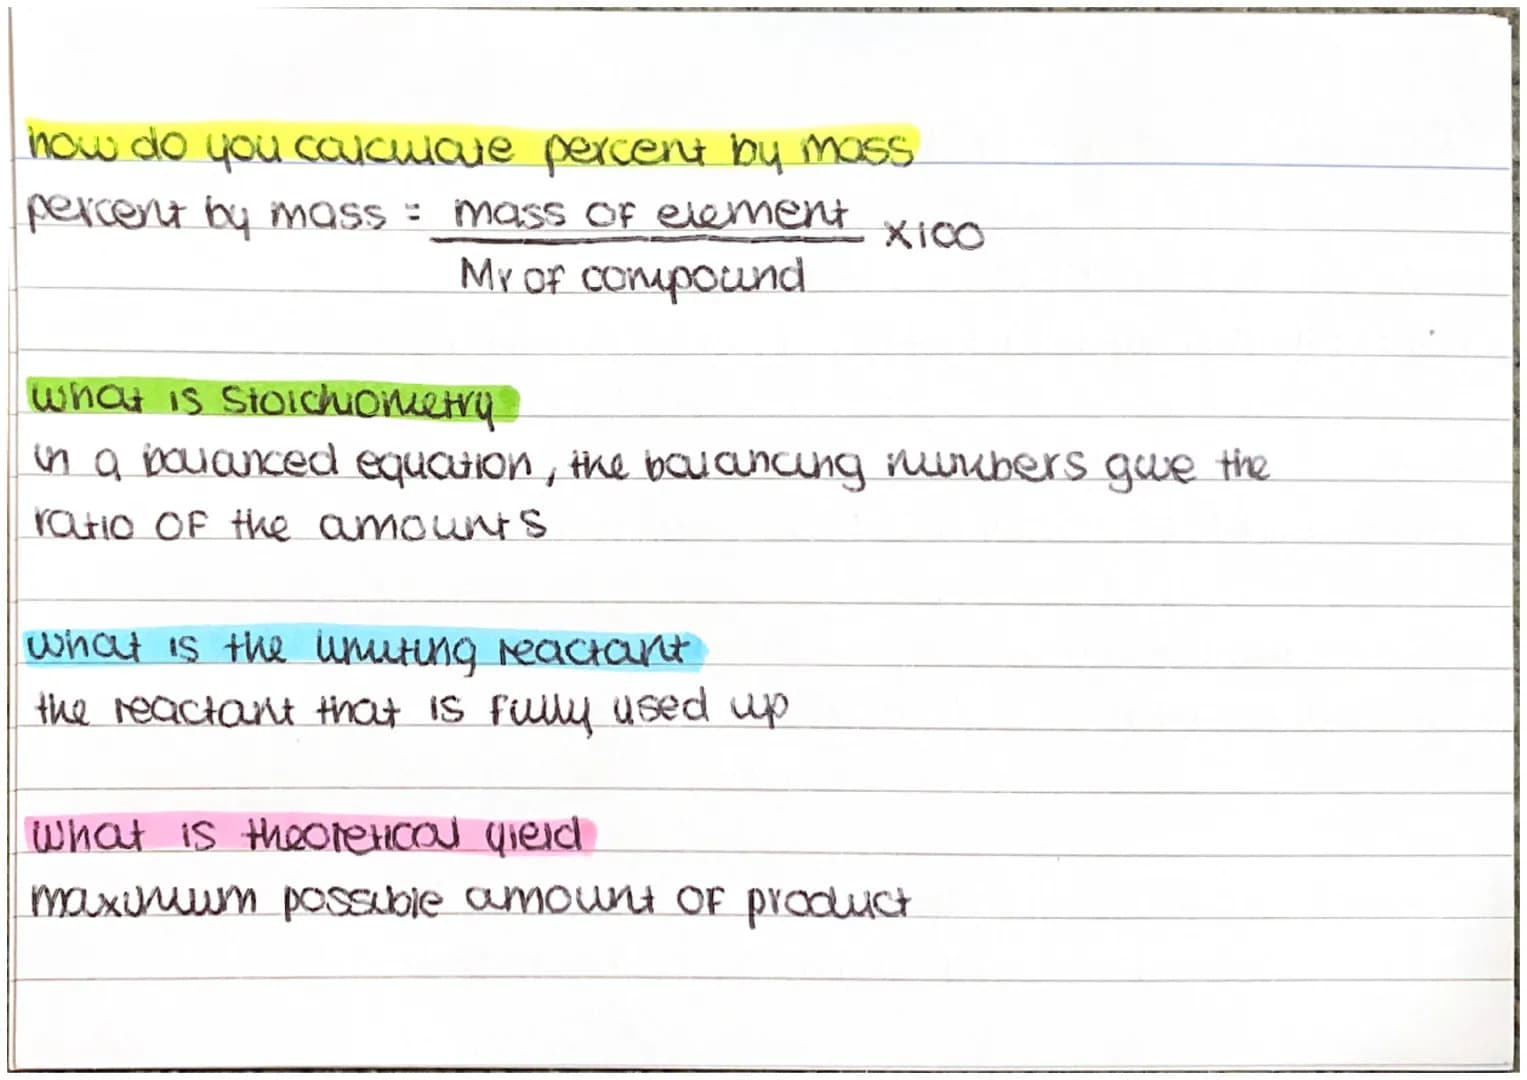 how do you calculate percent by mass
percent by mass = mass of element x100
Mr of compound
what is stoichiometry
in a balanced equation, the balancing numbers give the
ratio of the amounts
what is the limiting reactant
the reactant that is fully used up
what is theoretical yield
maximum possible amount of product